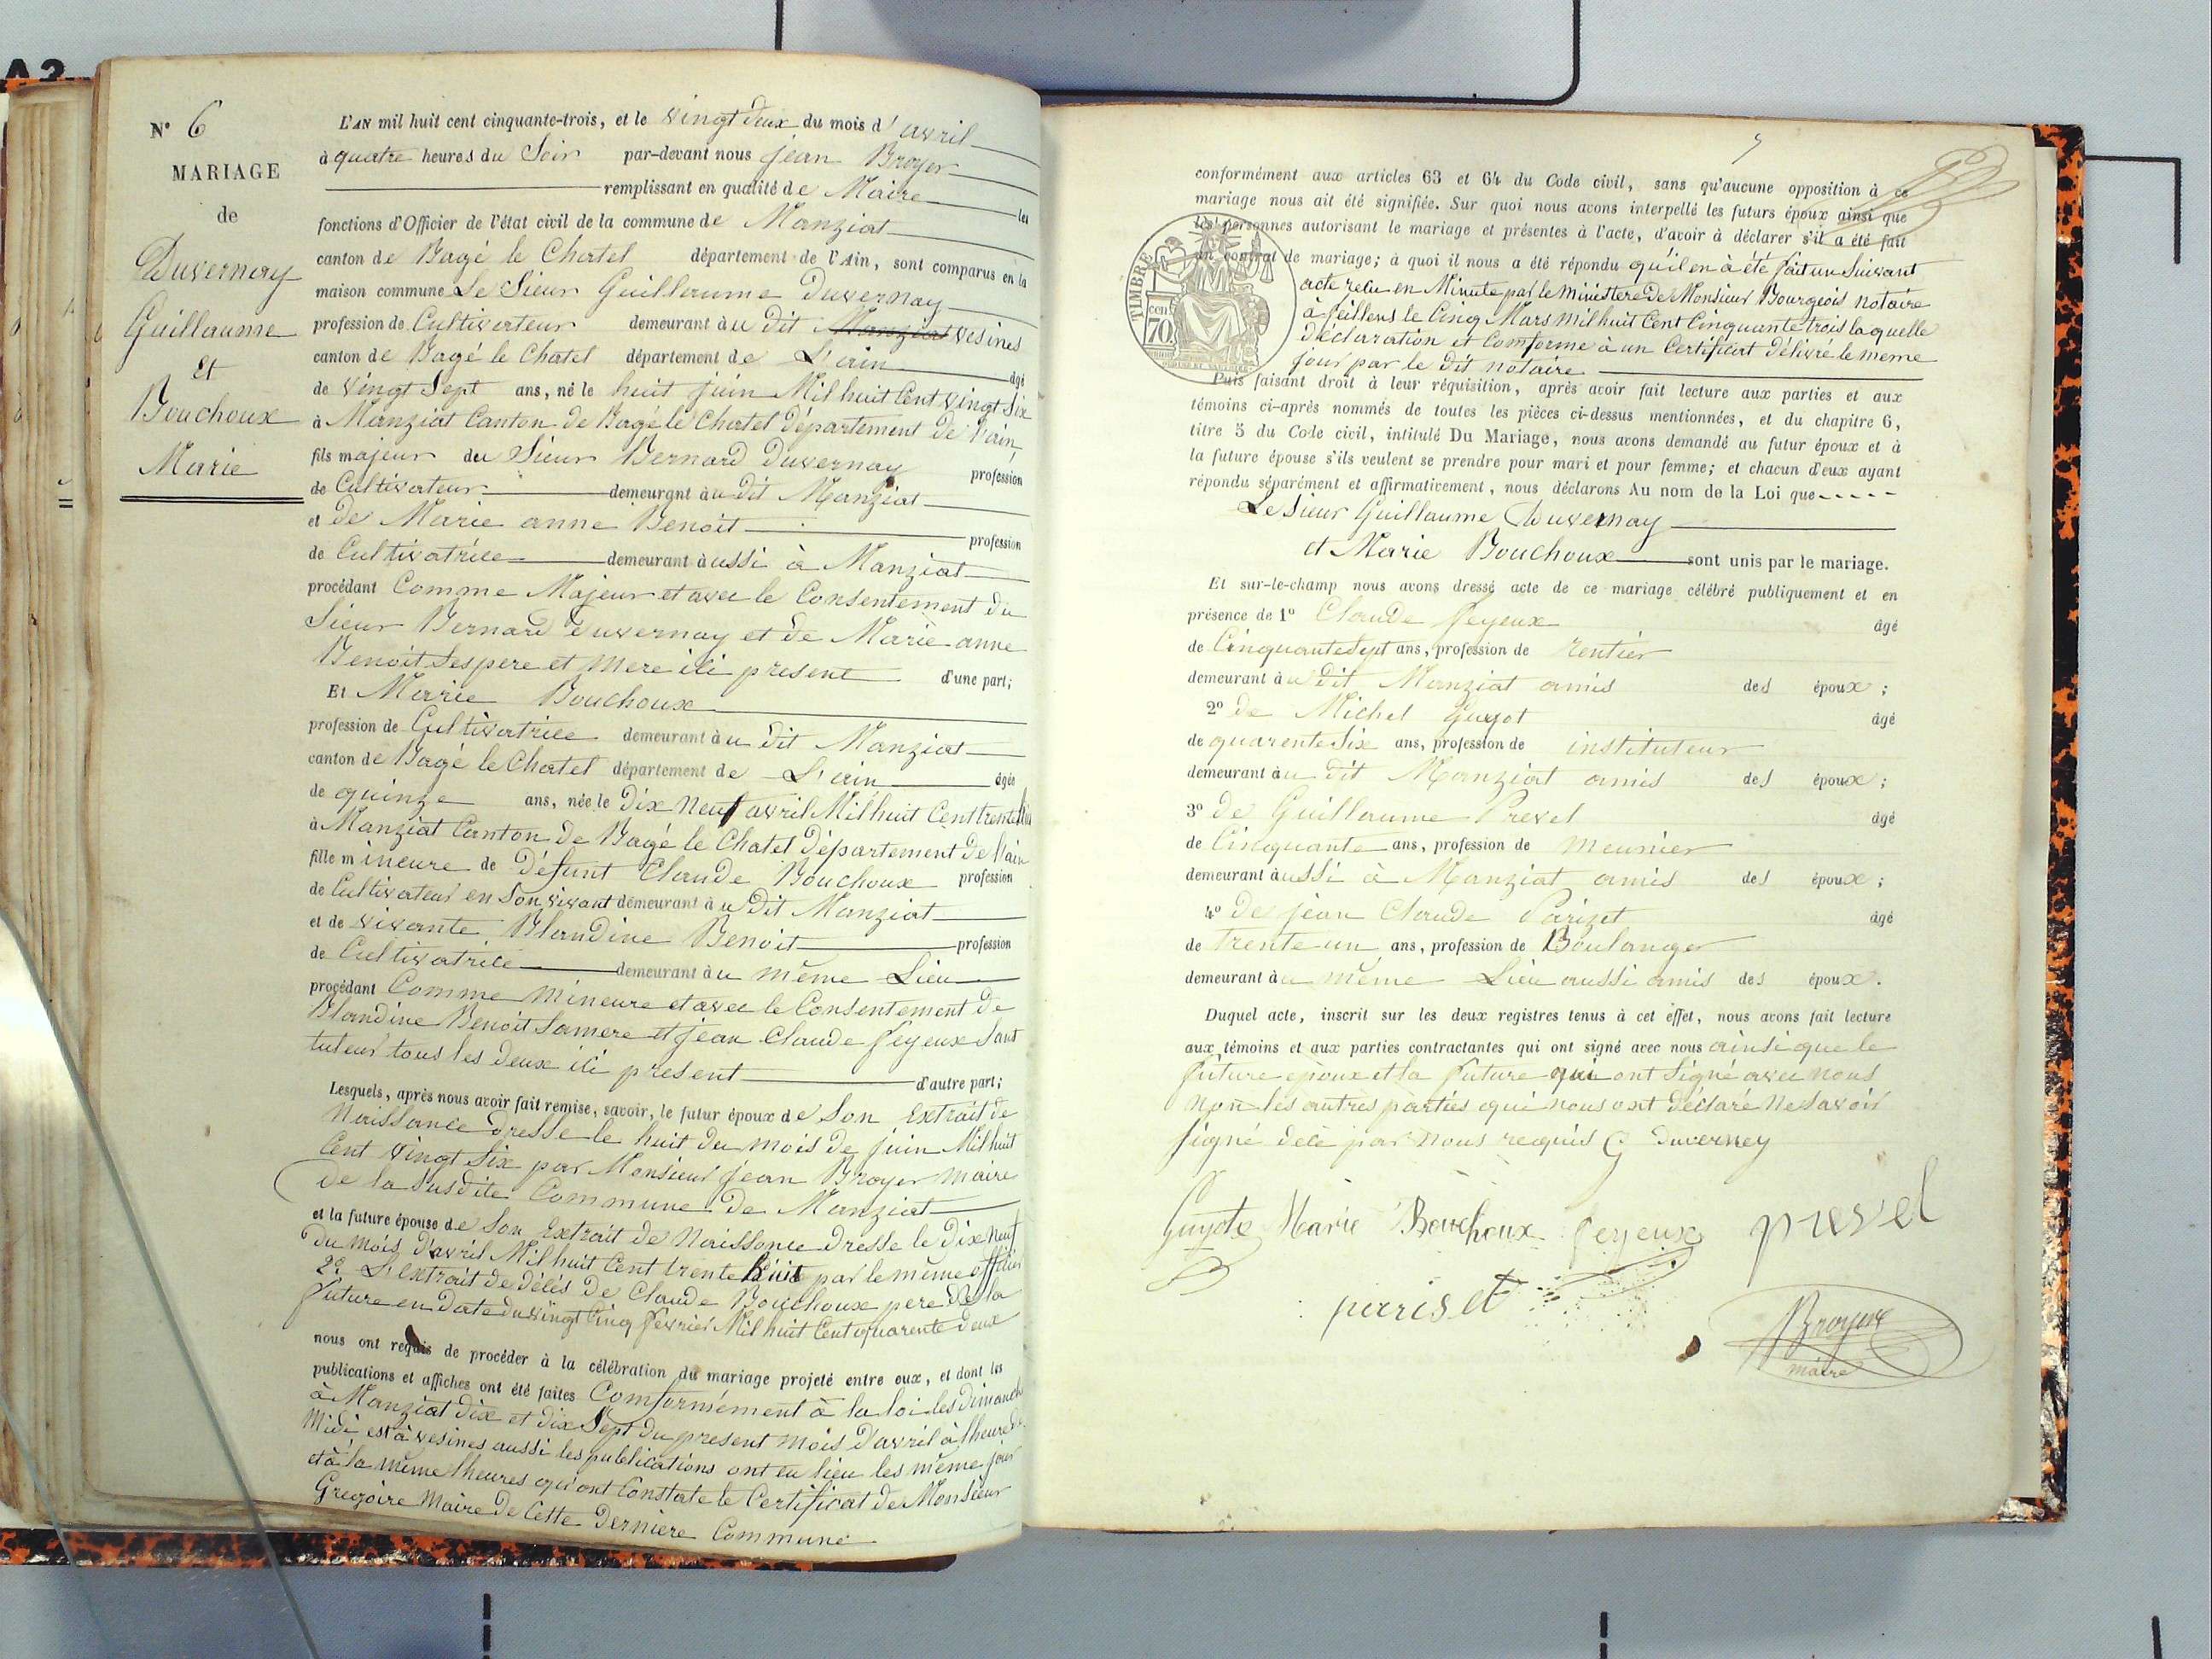 N° 6
MARIAGE
de
Duvernay
Guillaume
Et
Bouchoux
Marie
L'AN mil huit cent cinquante-trois, et le vingt deux du mois d'avril
à quatre heures du Soir par-devant nous jean Broyer
remplissant en qualité de Maire les
fonctions d'Officier de l'état civil de la commune de Manziat
canton de Bagé le Chatel département de l'Ain, sont comparus en la
maison commune Le Sieur Guillaume Duvernay
profession de Cultivateur demeurant au dit Manziat vesines
canton de Bagé le Chatel département de L'ain âgé
de vingt Sept ans, né le huit juin Mil huit Cent vingt Six
à Manziat Canton de Bagé le Chatel Département de l'ain
fils majeur du Sieur Bernard Duvernay profession
de Cultivateur demeurant au dit Manziat
et de Marie anne Benoit profession
de Cultivatrice demeurant àussi à Manziat
procédant Comme Majeur et avec le Consentement du
Sieur Bernard Duvernay et de Marie anne
Benoit Ses pere et Mere ici present d'une part;
Et Marie Bouchoux
profession de Cultivatrice demeurant àu dit Manziat
canton de Bagé le Chatel département de L'ain âgée
de quinze ans, née le Dix Neuf avril Mil huit Cent trente
à Manziat Canton de Bagé le Chatel Département de l'ain
fille mineure de Défunt Claude Bouchoux profession
de Cultivateur en Son vivant demeurant àu Dit Manziat
et de vivante Blandine Benoit profession
de Cultivatrice demeurant àu même Lieu
procédant Comme Mineure et avec le Consentement de
Blandine Benoit Sa mere et jean Claude feyeux Sont
tuteur tous les Deux ici present d'autre part;
Lesquels, après nous avoir fait remise, savoir, le futur époux de Son Extrait de
Naissance Dresse le huit du mois de juin Mil huit
Cent vingt Six par Monsieur jean Broyer Maire
de la Susdite Commune de Manziat
et la future épouse de Son Extrait de Naissance Dresse le Dix Neuf
du mois d'avril Mil huit Cent trente huit par le même officier
2° L'extrait de décés de Claude Bouchoux pere de la
future en Date du vingt Cinq février Mil huit Cent quarente Deux
nous ont requis de procéder à la célébration du mariage projeté entre eux, et dont les
publications et affiches ont été faites Comformément à la loi les Dimanche
à Manziat Dix et dix Sept du present mois D'avril à l'heure de
Midi est à vesines aussi les publications ont eu lieu les même jour
et à la même lheures qu'ont Constate le Certificat de Monsieur
Gregoire Maire De Cette Derniere Commune
conformément aux articles 63 et 64 du Code civil, sans qu'aucune opposition à ce
mariage nous ait été signifiée. Sur quoi nous avons interpellé les futurs époux ainsi que
les personnes autorisant le mariage et présentes à l'acte, d'avoir à déclarer s'il a été fait
un contrat de mariage; à quoi il nous a été répondu qu'il en à été fait un Suivant
TIMBRE
cen
70
acte recu en Minute par le Ministere De Monsieur Bourgeois Notaire
à feillens le Cinq Mars Mil huit Cent Cinquante trois laquelle
Déclaration et Comforme à un Certificat Délivré le meme
jour par le Dit notaire
Puis faisant droit à leur réquisition, après avoir fait lecture aux parties et aux
témoins ci-après nommés de toutes les pièces ci-dessus mentionnées, et du chapitre 6,
titre 5 du Code civil, intitulé Du Mariage, nous avons demandé au futur époux et à
la future épouse s'ils veulent se prendre pour mari et pour femme; et chacun d'eux ayant
répondu séparément et affirmativement, nous déclarons Au nom de la Loi que
Le Sieur Guillaume Duvernay
et Marie Bouchoux sont unis par le mariage.
Et sur-le-champ nous avons dressé acte de ce mariage célébré publiquement et en
présence de 1° Claude feyeux âgé
de Cinquante Sept ans, profession de rentier
demeurant àu Dit Manziat amis des époux;
2° de Michel Guyot âgé
de quarente Six ans, profession de instituteur
demeurant àu dit Manziat amis des époux;
3° de Guillaume Prevel âgé
de Cinquante ans, profession de Meunier
demeurant àussi à Manziat amis des époux;
4° de jean Claude Pariset âgé
de Trente un ans, profession de Boulanger
demeurant àu même Lieu aussi amis des époux.
Duquel acte, inscrit sur les deux registres tenus à cet effet, nous avons fait lecture
aux témoins et aux parties contractantes qui ont signé avec nous ainsi que le
future époux et la future qui ont Signé avec nous
non les autres parties qui nous ont déclaré ne savoir
signé dece par nous requis G Duverney
Guyote Marie Bouchoux feyeux prevel
pariset
Broyer
maire